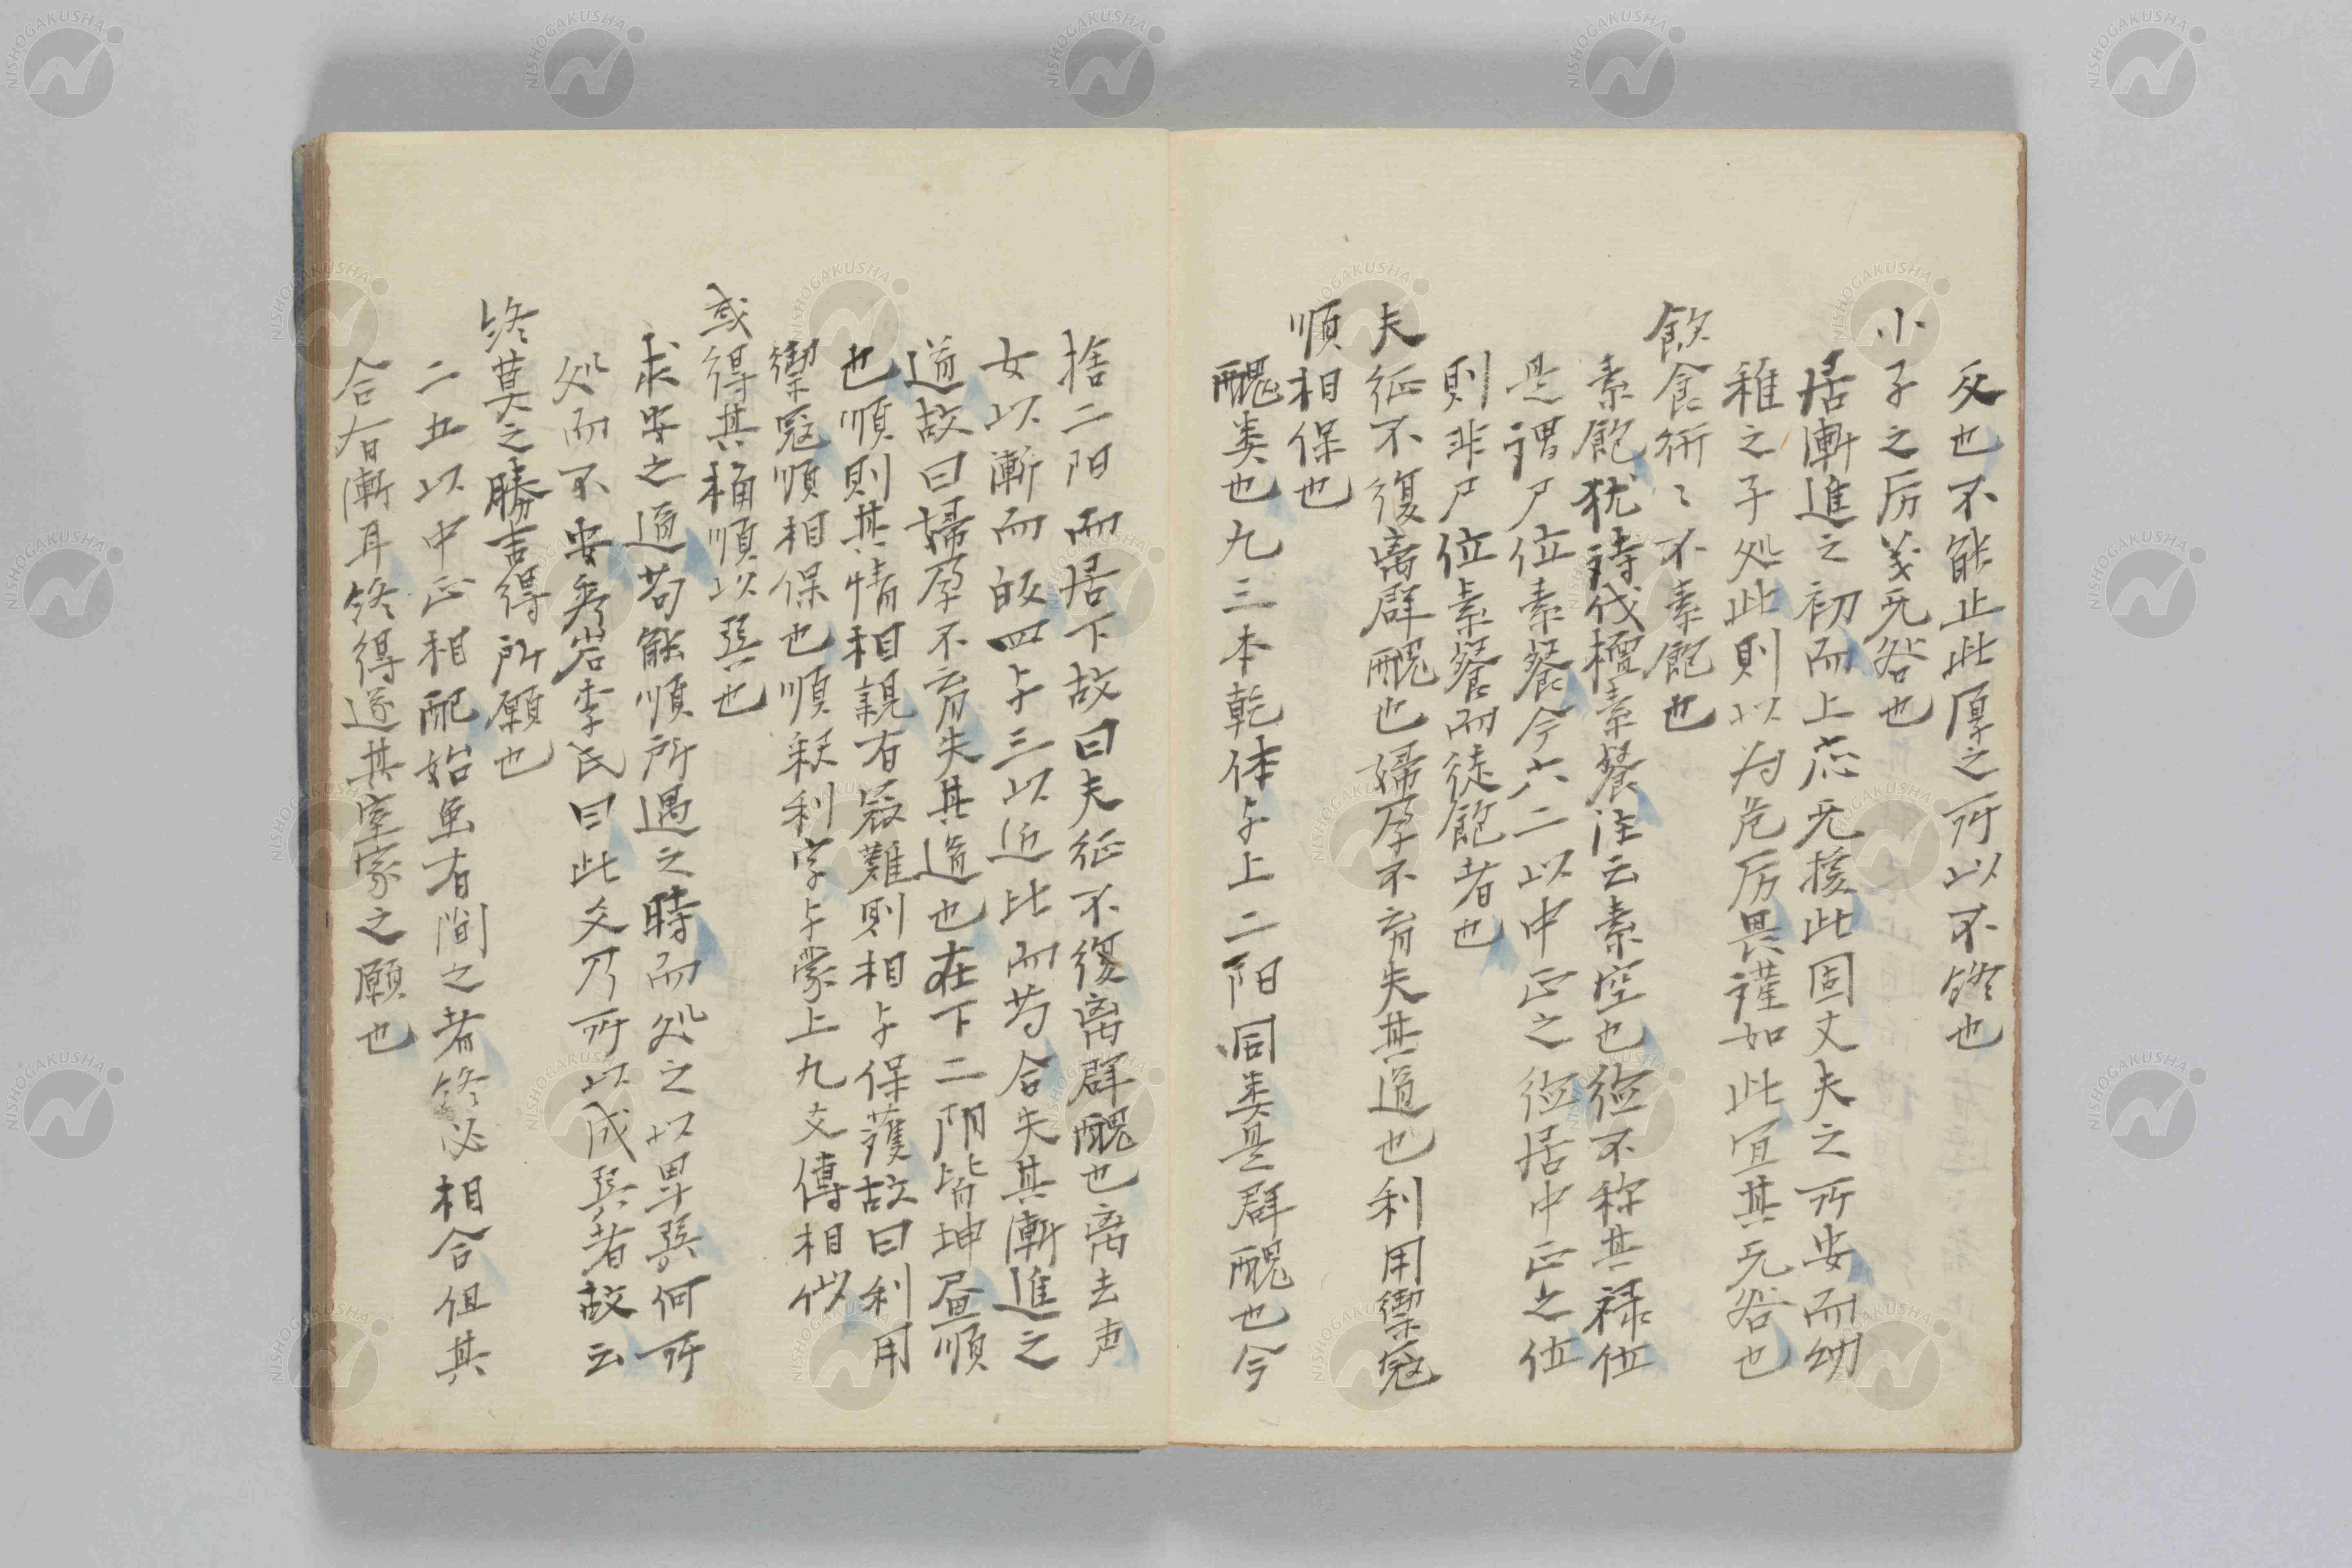 反也不能止此厚之所以不終也
小子之厉义无咎也
居漸進之初而上応无援此固丈夫之所安而幼
稚之子処此則以为危厉畏謹如此宜其无咎也
飲食衎〻不素飽也
素飽犹詩伐檀素餐注云素空也位不称其禄位
是谓尸位素餐今六二以中正之位居中正之位
則非尸位素餐而徒飽者也
夫征不復离群醜也婦孕不育失其道也利用禦寇
順相保也
醜类也九三本乾体与上二阳同类是群醜也今
捨二阳而居下故曰夫征不復离群醜也离去声
女以漸而故四与三以近比而苟合失其漸進之
道故曰婦孕不育失其道也在下二阴皆坤昼順
也順則其情相親有寇難則相与保護故曰利用
禦寇順相保也順釈利字与蒙上九文傳相似
或得其桷順以巽也
求安之道苟能順所遇之時而処之以卑巽何所
処而不安秀岩李氏曰此爻乃所以成巽者故云
終莫之勝吉得所願也
二五以中正相配始虽有间之者終必相合但其
合有漸耳終得遂其室家之願也
NISHOGAKUSHA